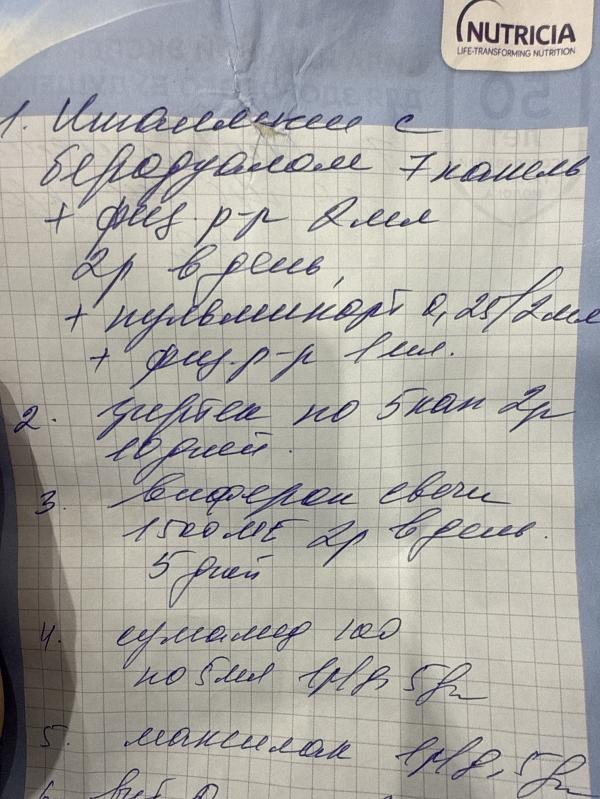 NUTRICIA
LIFE-TRANSFORMING NUTRITION
50
лет
1. Ингаляции с
беродуалом 7 капель
+ физ. р-р 2 мл
2р в день,
+ пульмикорт 0,25/2мл
+ физ. р-р 1 мл.
2. зиртек по 5 кап 2р
10 дней.
3. виферон свечи
1500МЕ 2р в день.
5 дней
4. сумамед 100
по 5мл 1р/д, 5дн
5. максилак 1р/д, 5дн
6. вит